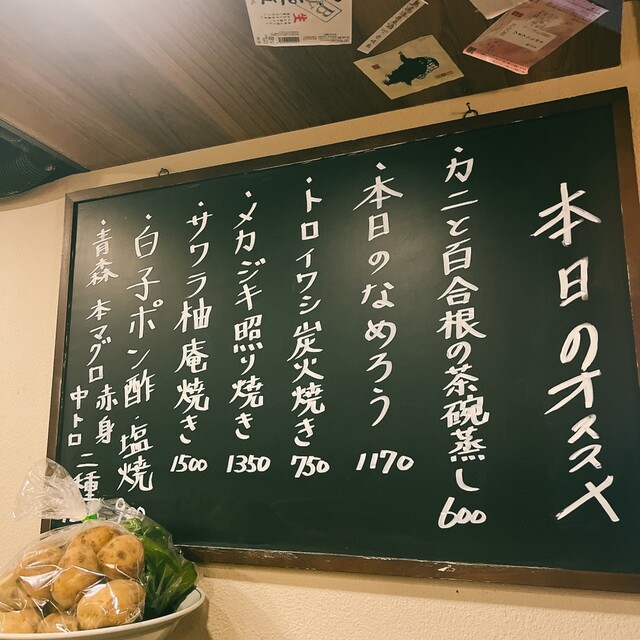 本日のオススメ
・カニと百合根の茶碗蒸し 600
・本日のなめろう 1170
・トロイワシ炭火焼き 750
・メカジキ照り焼き 1350
・サワラ柚庵焼き 1500
・白子ポン酢・塩焼
・青森 本マグロ 赤身 中トロ 二種